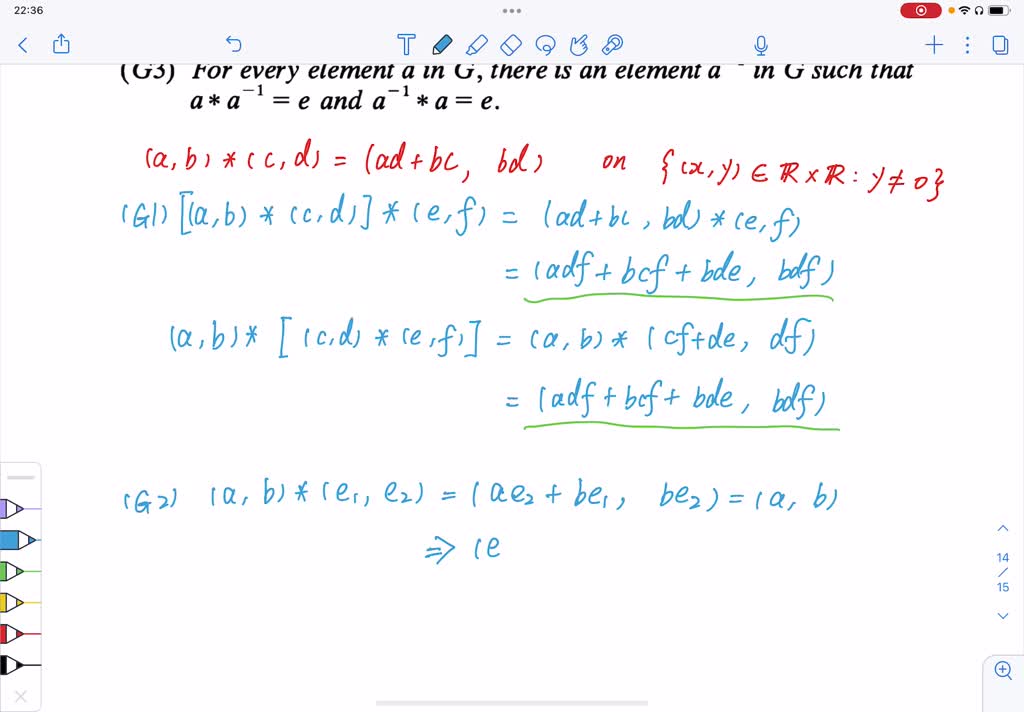 22:36
(G3) For every element a in G, there is an element a⁻ in G such that
a * a⁻¹ = e and a⁻¹ * a = e.
(a, b) * (c, d) = (ad + bc, bd) on {(x, y) ∈ ℝ × ℝ : y ≠ 0}
(G1) [(a, b) * (c, d)] * (e, f) = (ad + bc, bd) * (e, f)
= (adf + bcf + bde, bdf)
(a, b) * [(c, d) * (e, f)] = (a, b) * (cf + de, df)
= (adf + bcf + bde, bdf)
(G2) (a, b) * (e₁, e₂) = (ae₂ + be₁, be₂) = (a, b)
⇒ (e
14
/
15